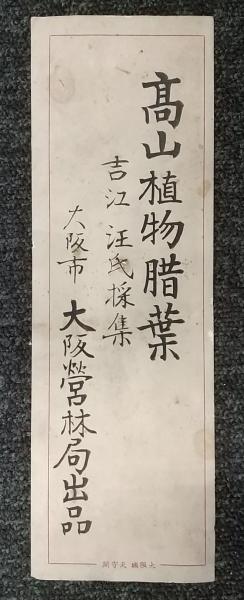 髙山植物腊葉
吉江 汪氏採集
大阪市 大阪營林局出品
大阪城 天守閣